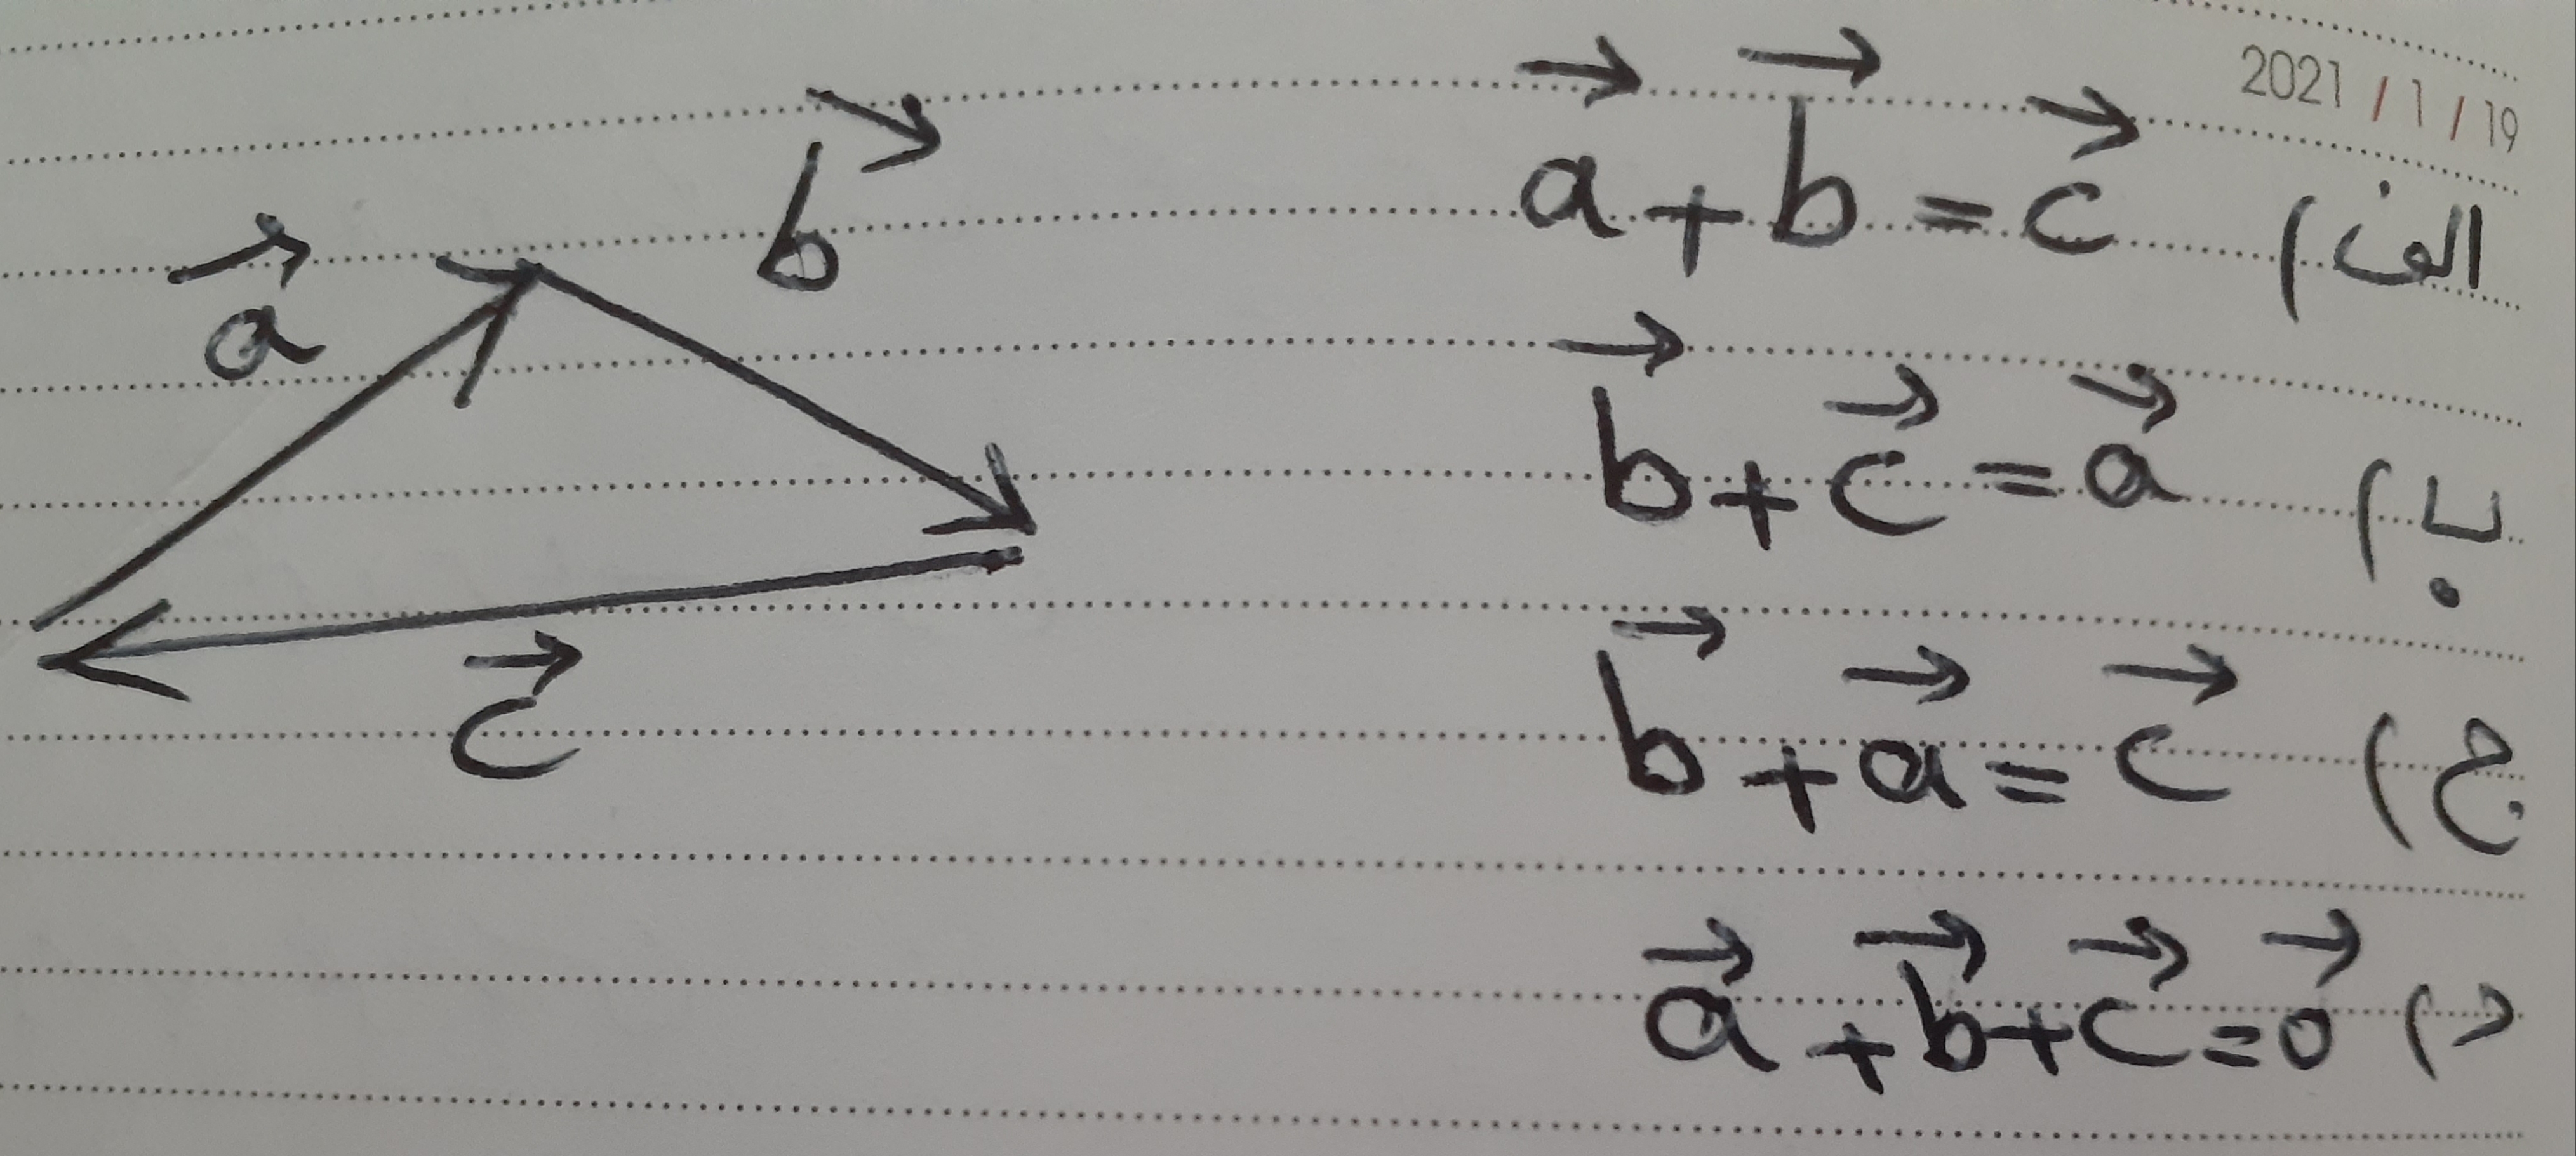 2021/1/19
a⃗
b⃗
c⃗
الف) a⃗ + b⃗ = c⃗
ب) b⃗ + c⃗ = a⃗
ج) b⃗ + a⃗ = c⃗
د) a⃗ + b⃗ + c⃗ = 0⃗